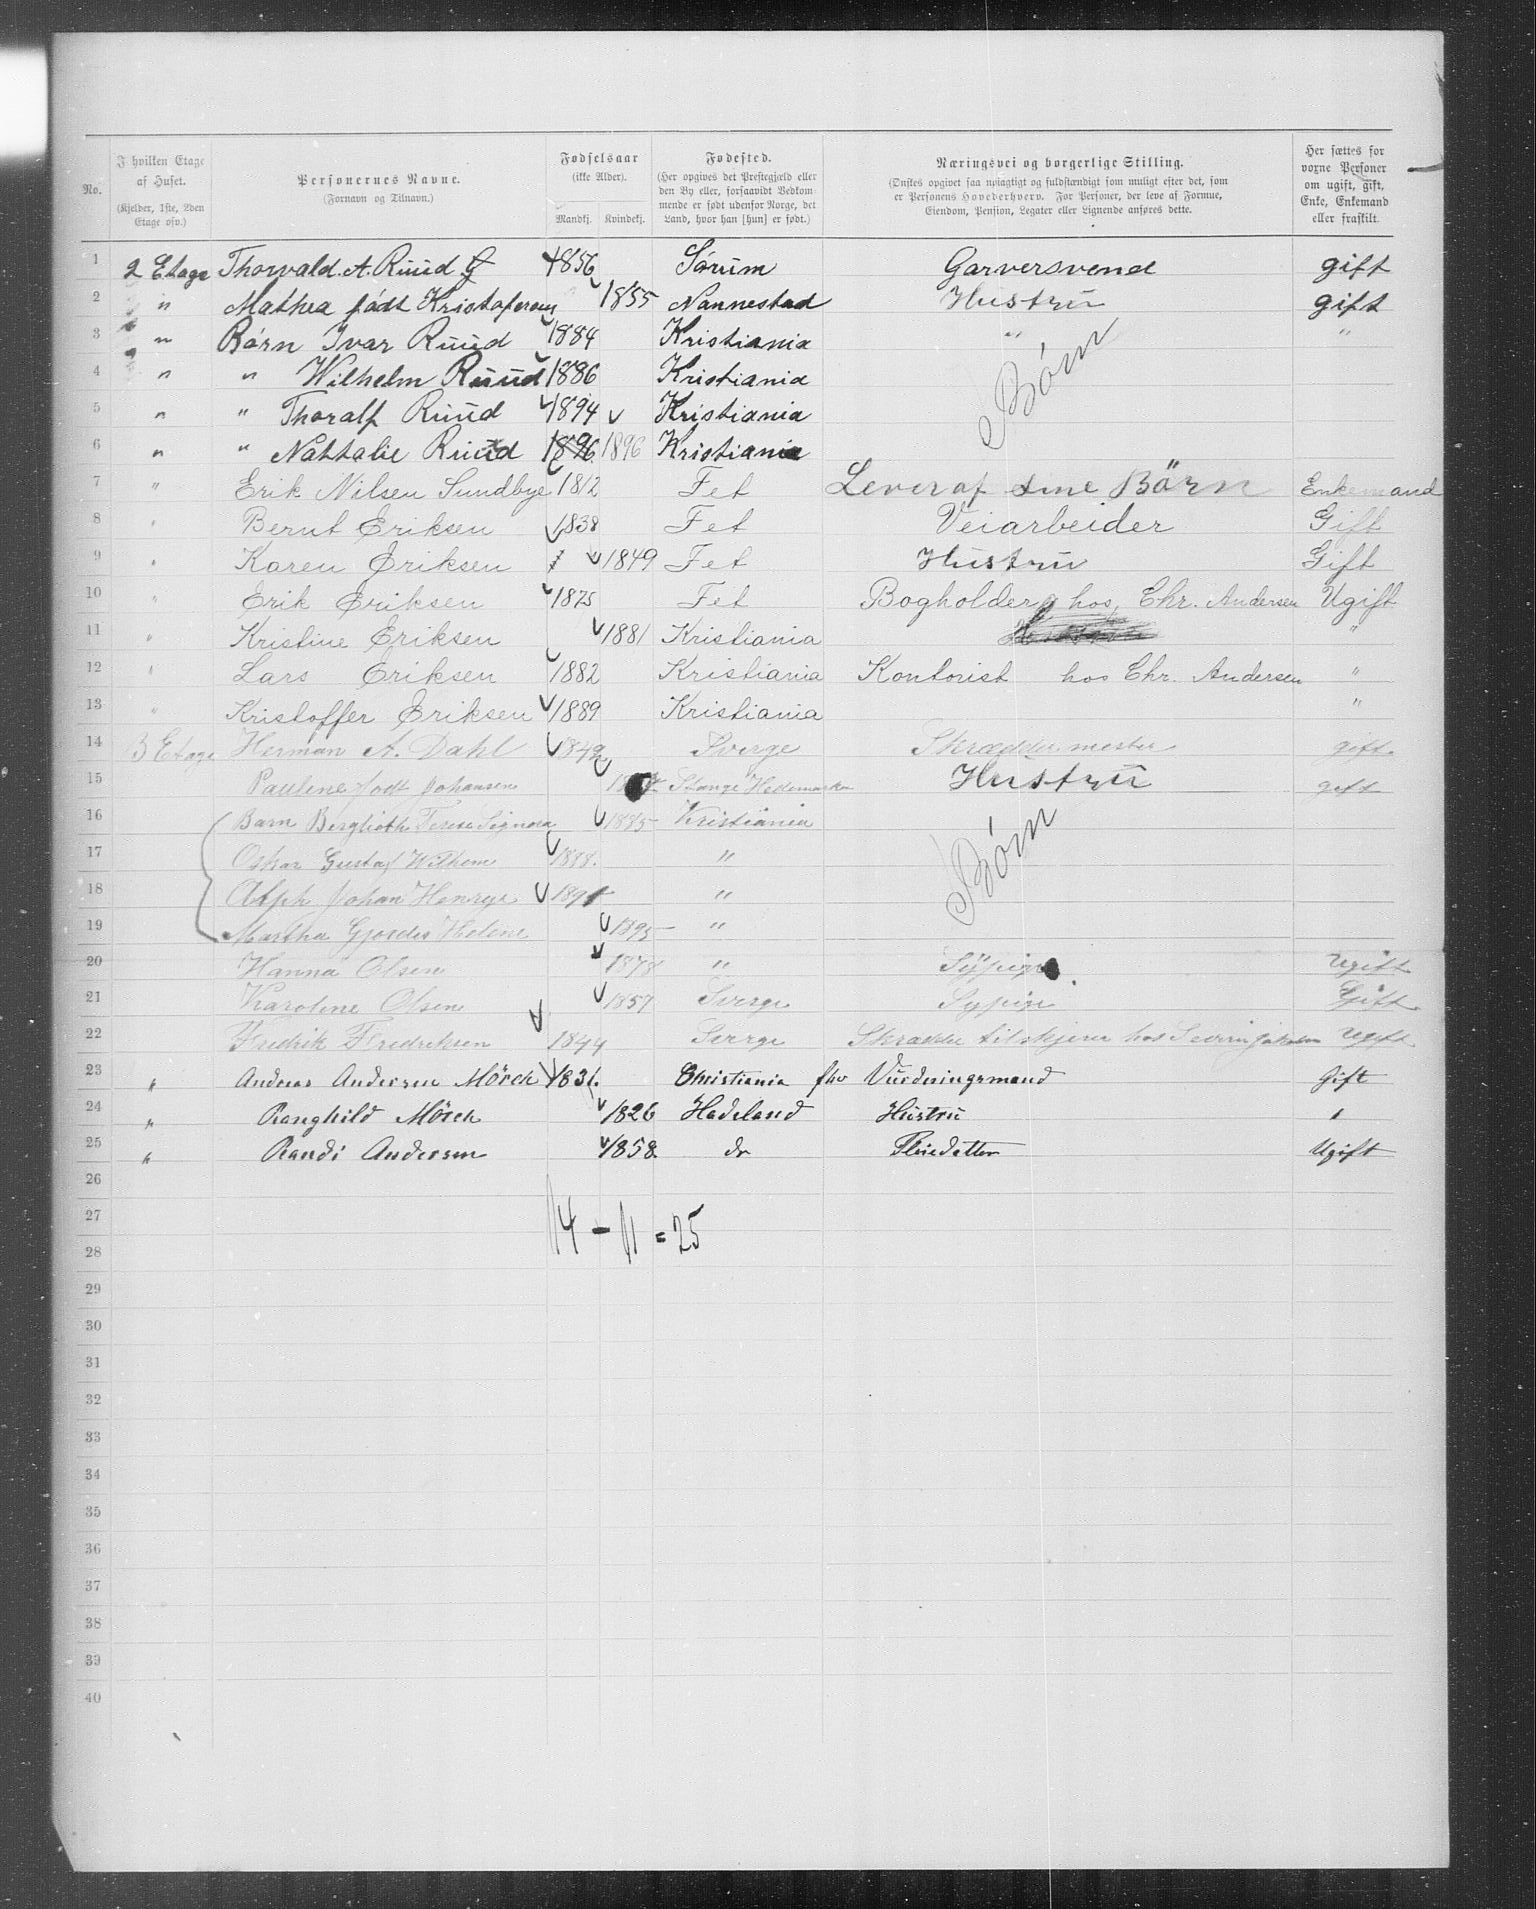 No. | I hvilken Etage af Huset. (Kjelder, 1ste, 2den Etage osv.) | Personernes Navne. (Fornavn og Tilnavn.) | Fødselsaar (ikke Alder). Mandkj. | Kvindekj. | Fødested. (Her opgives det Prestegjæld eller den By eller, forsaavidt Vedkommende er født udenfor Norge, det Land, hvor han [hun] er født.) | Næringsvei og borgerlige Stilling. (Ønskes opgivet saa nøiagtigt og fuldstændigt som muligt efter det, som er Personens Hovederhverv. For Personer, der leve af Formue, Eiendom, Pension, Legater eller Lignende anføres dette.) | Her sættes for voxne Personer om ugift, gift, Enke, Enkemand eller fraskilt.
1 2 Etage Thorvald. A. Ruud 1856 Sørum Garversvend gift
2 " Mathea født Kristofersen 1855 Nannestad Hustru gift
3 " Børn Ivar Ruud 1884 Kristiania " "
4 " " Wilhelm Ruud 1886 Kristiania Børn
5 " " Thoralf Ruud 1894 Kristiania
6 " " Nathalie Ruud 1896 1896 Kristiania
7 " Erik Nilsen Sundbye 1812 Fet Lever af sine Börn Enkemand
8 " Bernt Eriksen 1838 Fet Veiarbeider Gift
9 " Karen Eriksen 1849 Fet Hustru Gift
10 " Erik Eriksen 1875 Fet Bogholder hos Chr. Andersen Ugift
11 " Kristine Eriksen 1881 Kristiania "
12 " Lars Eriksen 1882 Kristiania Kontorist hos Chr. Andersen "
13 " Kristoffer Eriksen 1889 Kristiania "
14 3 Etage Herman A. Dahl 1849 Sverge Skræddermester gift
15 Pauline født Johansen Stange Hedemarken Hustru gift
16 Barn Berglioth Terese Signora 1885 Kristiania
17 Oskar Gustaf Wilhem 1888. " Børn
18 Johan Henrye 1891 "
19 Martha Helene 1895 "
20 Hanna Olsen 1878 " Sypige Ugift
21 Karoline Olsen 1857 Sverge Sypige Gift
22 Fredrik Fredriksen 1844 Sverge Skrædder tilskjærer hos Ugift
23 " Andreas Andersen Mörch 1831. Christiania fhv Vurderingsmand Gift
24 " Ranghild Mörch 1826 Hadeland Hustru "
25 " Randi Andersen 1858 do Ugift
26
27 14 - 11 = 25
28
29
30
31
32
33
34
35
36
37
38
39
40